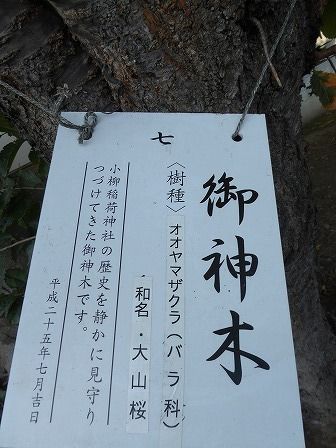 御神木
七
〈樹種〉オオヤマザクラ(バラ科)
和名・大山桜
小柳稲荷神社の歴史を静かに見守り
つづけてきた御神木です。
平成二十五年七月吉日